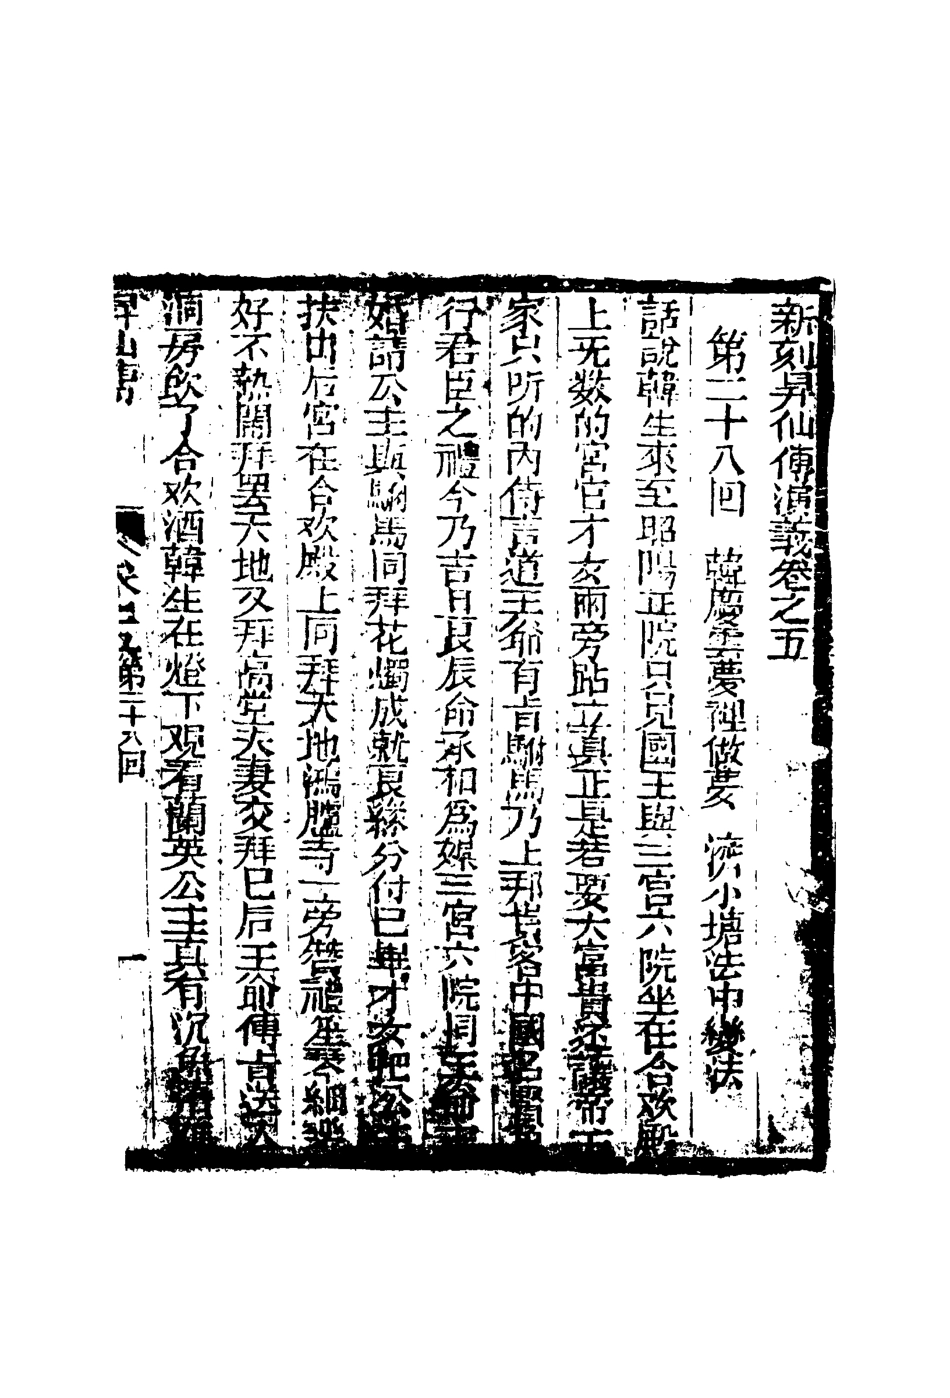 新刻昇仙傳演義卷之五
第二十八回 韓慶雲夢裡做夢 濟小塘法中變法
話說韓生來至昭陽正院只見國王與三宮六院坐在合欢殿
上无数的宮官才女兩旁跕立真正是若要大富貴除非帝王
家只听的内侍言道王爺有旨駙馬乃上邦貴客中國名
行君臣之禮今乃吉日良辰命承相為媒三宮六院同王爺
婚請公主與駙馬同拜花燭成就良緣分付已畢才女把公主
扶出后宮在合欢殿上同拜天地鴻臚寺一旁贊禮笙琴細樂
好不熱鬧拜罢天地又拜高堂夫妻交拜已后王爺傳旨送入
洞房飲了合欢酒韓生在燈下观看蘭英公主真有沉魚落雁
昇仙傳 卷之五 第二十八回 一